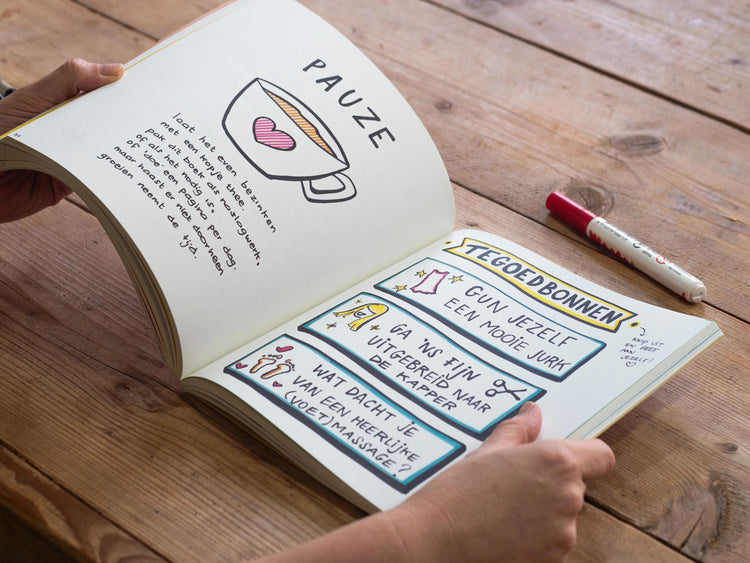 PAUZE
laat het even bezinken
met een kopje thee.
pak dit boek als naslagwerk,
of als het nodig is,
of 'doe' een pagina per dag.
maar haast er niet doorheen
groeien neemt de
tijd.
TEGOEDBONNEN
GUN JEZELF
EEN MOOIE JURK
GA 'NS FIJN
UITGEBREID NAAR
DE KAPPER
WAT DACHT JE
VAN EEN HEERLIJKE
(VOET)MASSAGE?
KNIP UIT
EN GEEF
AAN
JEZELF!